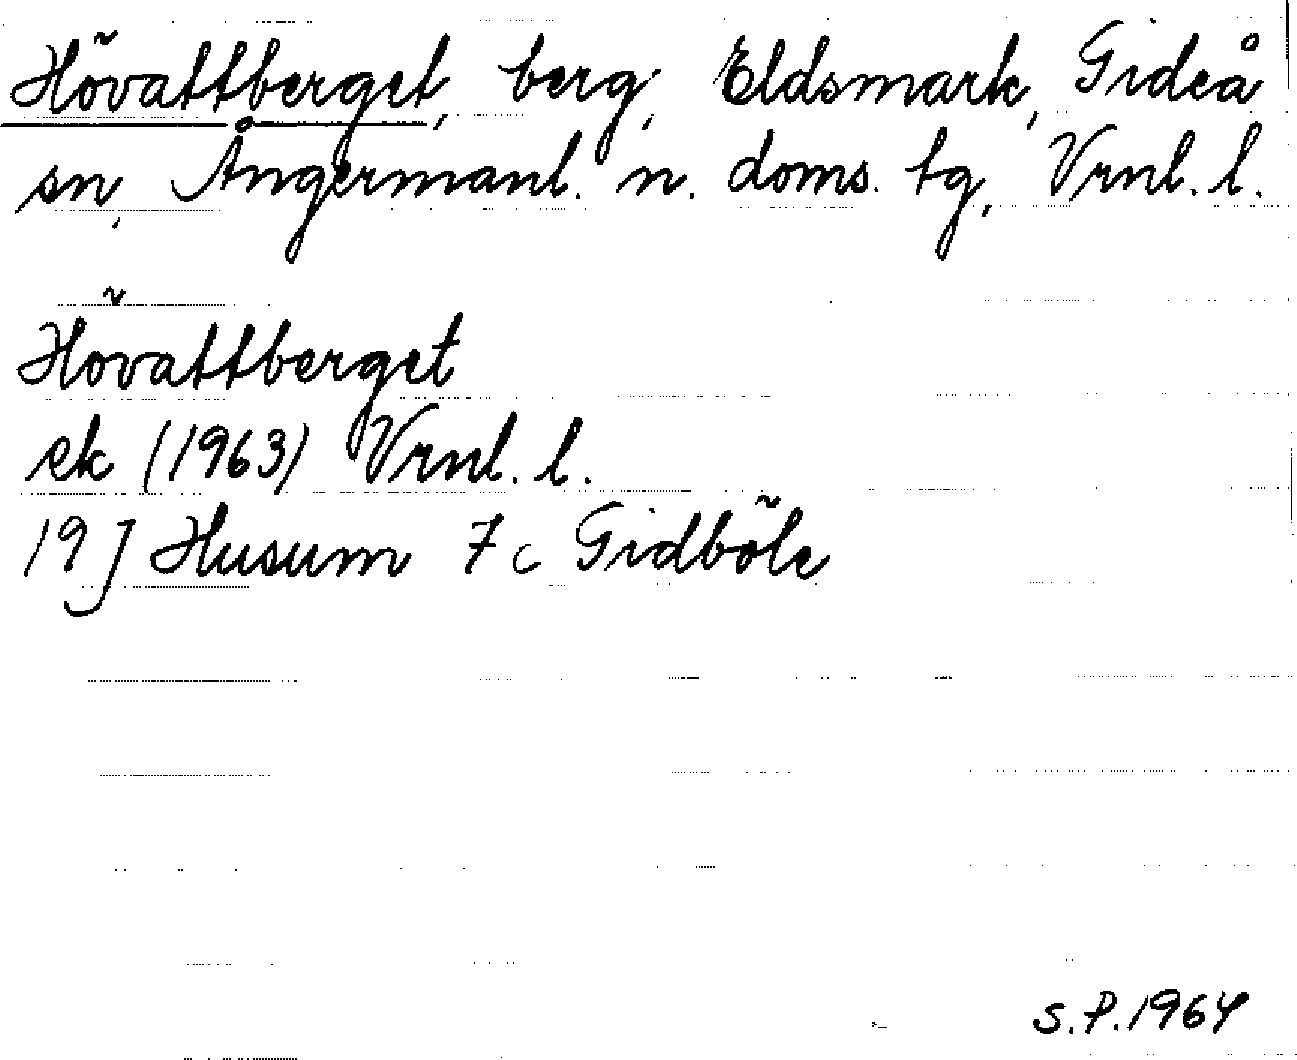 Hövattberget, berg, Eldsmark, Gideå
sn, Ångermanl. n. doms. tg, Vrnl. l.
Hövattberget
ek (1963) Vrnl. l.
19 J Husum 7 c Gidböle
S.P. 1964